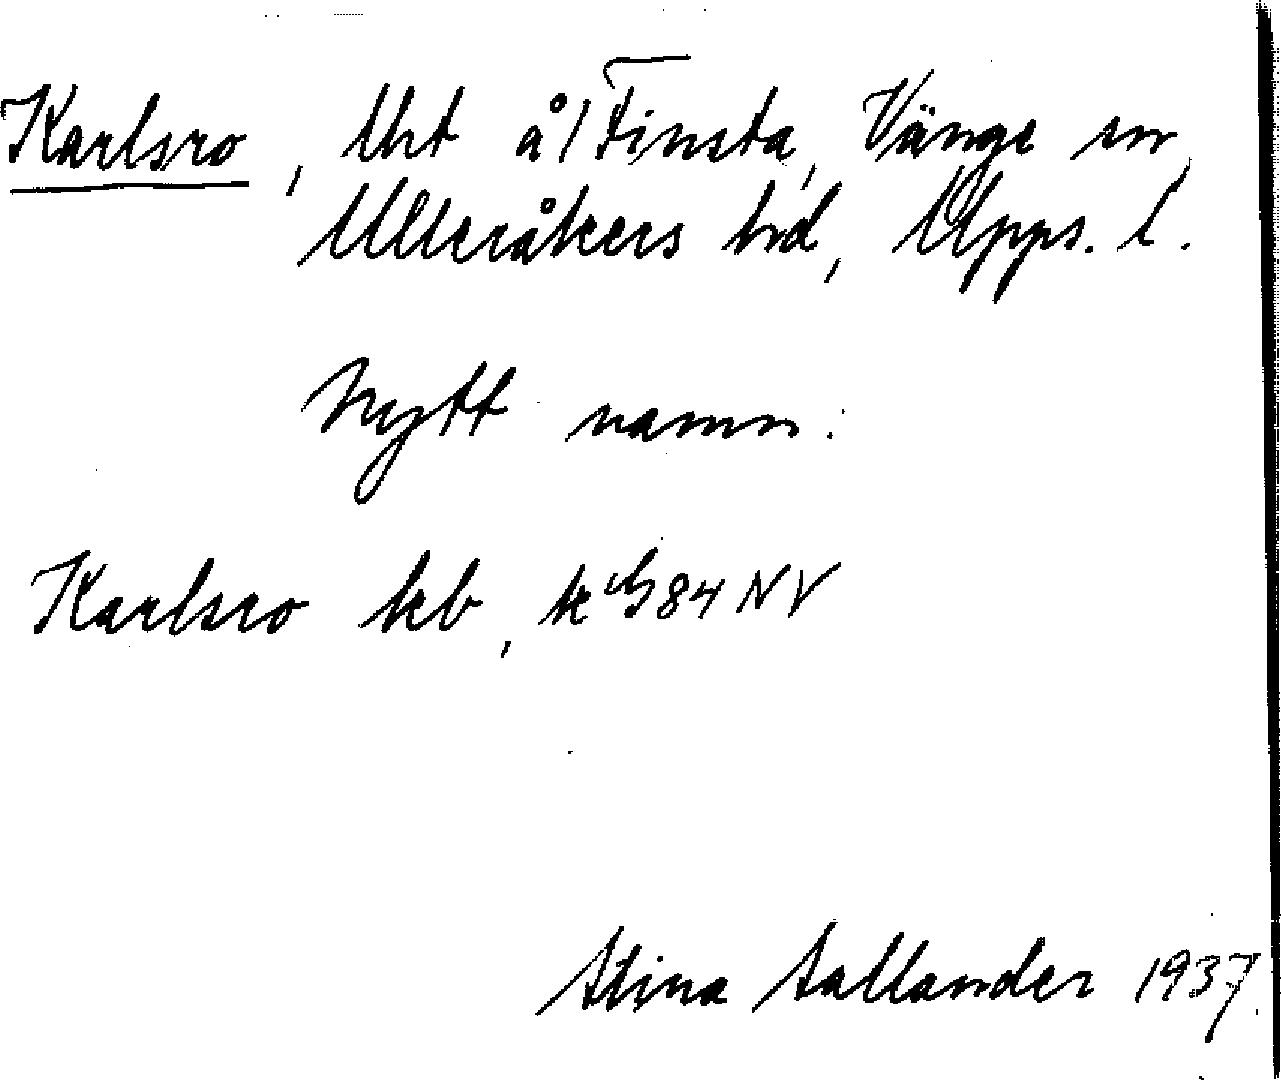 Karlsro, lht å/ Finsta, Vänge sn,
Ulleråkers hd, Upps. l.
Nytt namn.
Karlsro kb, k 84 NV
Stina Sallander 1937.